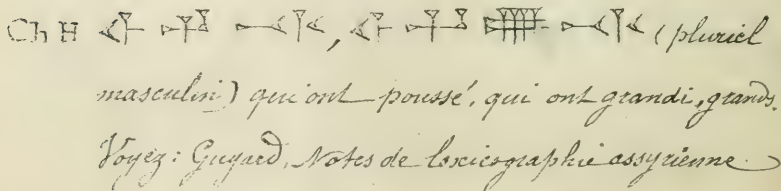 Ch H 𒅆 𒄷 𒋾, 𒅆 𒄷 𒌑 𒋾 (pluriel
masculin) qui ont poussé, qui ont grandi, grands.
Voyez: Guyard, Notes de lexicographie assyrienne.